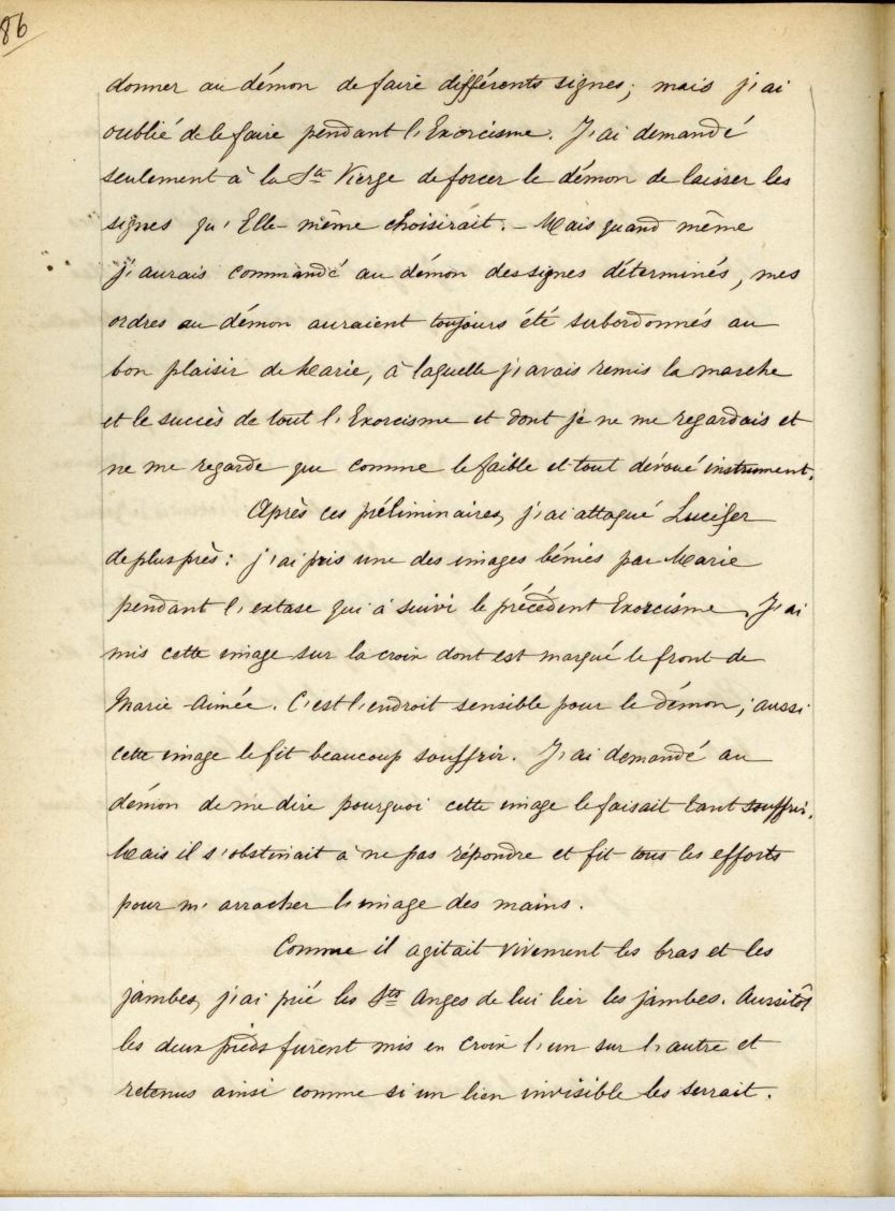 86
donner au démon de faire différents signes; mais j'ai
oublié de le faire pendant l'Exorcisme. J'ai demandé
seulement à la Ste Vierge de forcer le démon de laisser les
signes qu'Elle-même choisirait. - Mais quand même
j'aurais commandé au démon des signes déterminés, mes
ordres au démon auraient toujours été subordonnés au
bon plaisir de Marie, à laquelle j'avais remis la marche
et le succès de tout l'Exorcisme et dont je ne me regardais et
ne me regarde que comme le faible et tout dévoué instrument.
Après ces préliminaires, j'ai attaqué Lucifer
de plus près: j'ai pris une des images bénies par Marie
pendant l'extase qui a suivi le précédent Exorcisme. J'ai
mis cette image sur la croix dont est marqué le front de
Marie-Aimée. C'est l'endroit sensible pour le démon; aussi
cette image le fit beaucoup souffrir. J'ai demandé au
démon de me dire pourquoi cette image le faisait tant souffrir.
Mais il s'obstinait à ne pas répondre et fit tous les efforts
pour m'arracher l'image des mains.
Comme il agitait vivement les bras et les
jambes, j'ai prié les Sts Anges de lui lier les jambes. Aussitôt
les deux pieds furent mis en croix l'un sur l'autre et
retenus ainsi comme si un lien invisible les serrait.